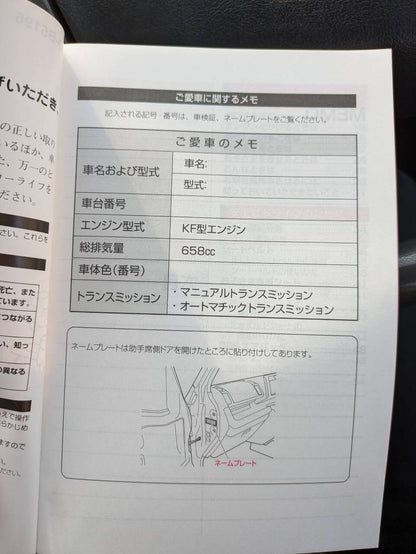 ご愛車に関するメモ
記入される記号・番号は、車検証、ネームプレートをご覧ください。
ご愛車のメモ
車名および型式
車名:
型式:
車台番号
エンジン型式 KF型エンジン
総排気量 658cc
車体色(番号)
トランスミッション
・マニュアルトランスミッション
・オートマチックトランスミッション
ネームプレートは助手席側ドアを開けたところに貼り付けしてあります。
ネームプレート
いただき、
の正しい取り
いるほか、車
た、万一のと
カーライフを
ださい。
さい。これらを
死亡、また
ています。
つながる
い、知っ
の異なる
えで操作
らかじめ
ますので
い。
ださい。